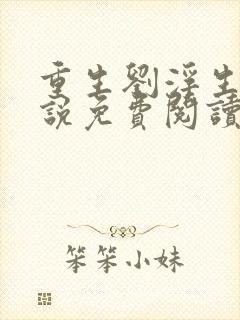 重生劉浮生
説免費閱讀
笨笨小妹